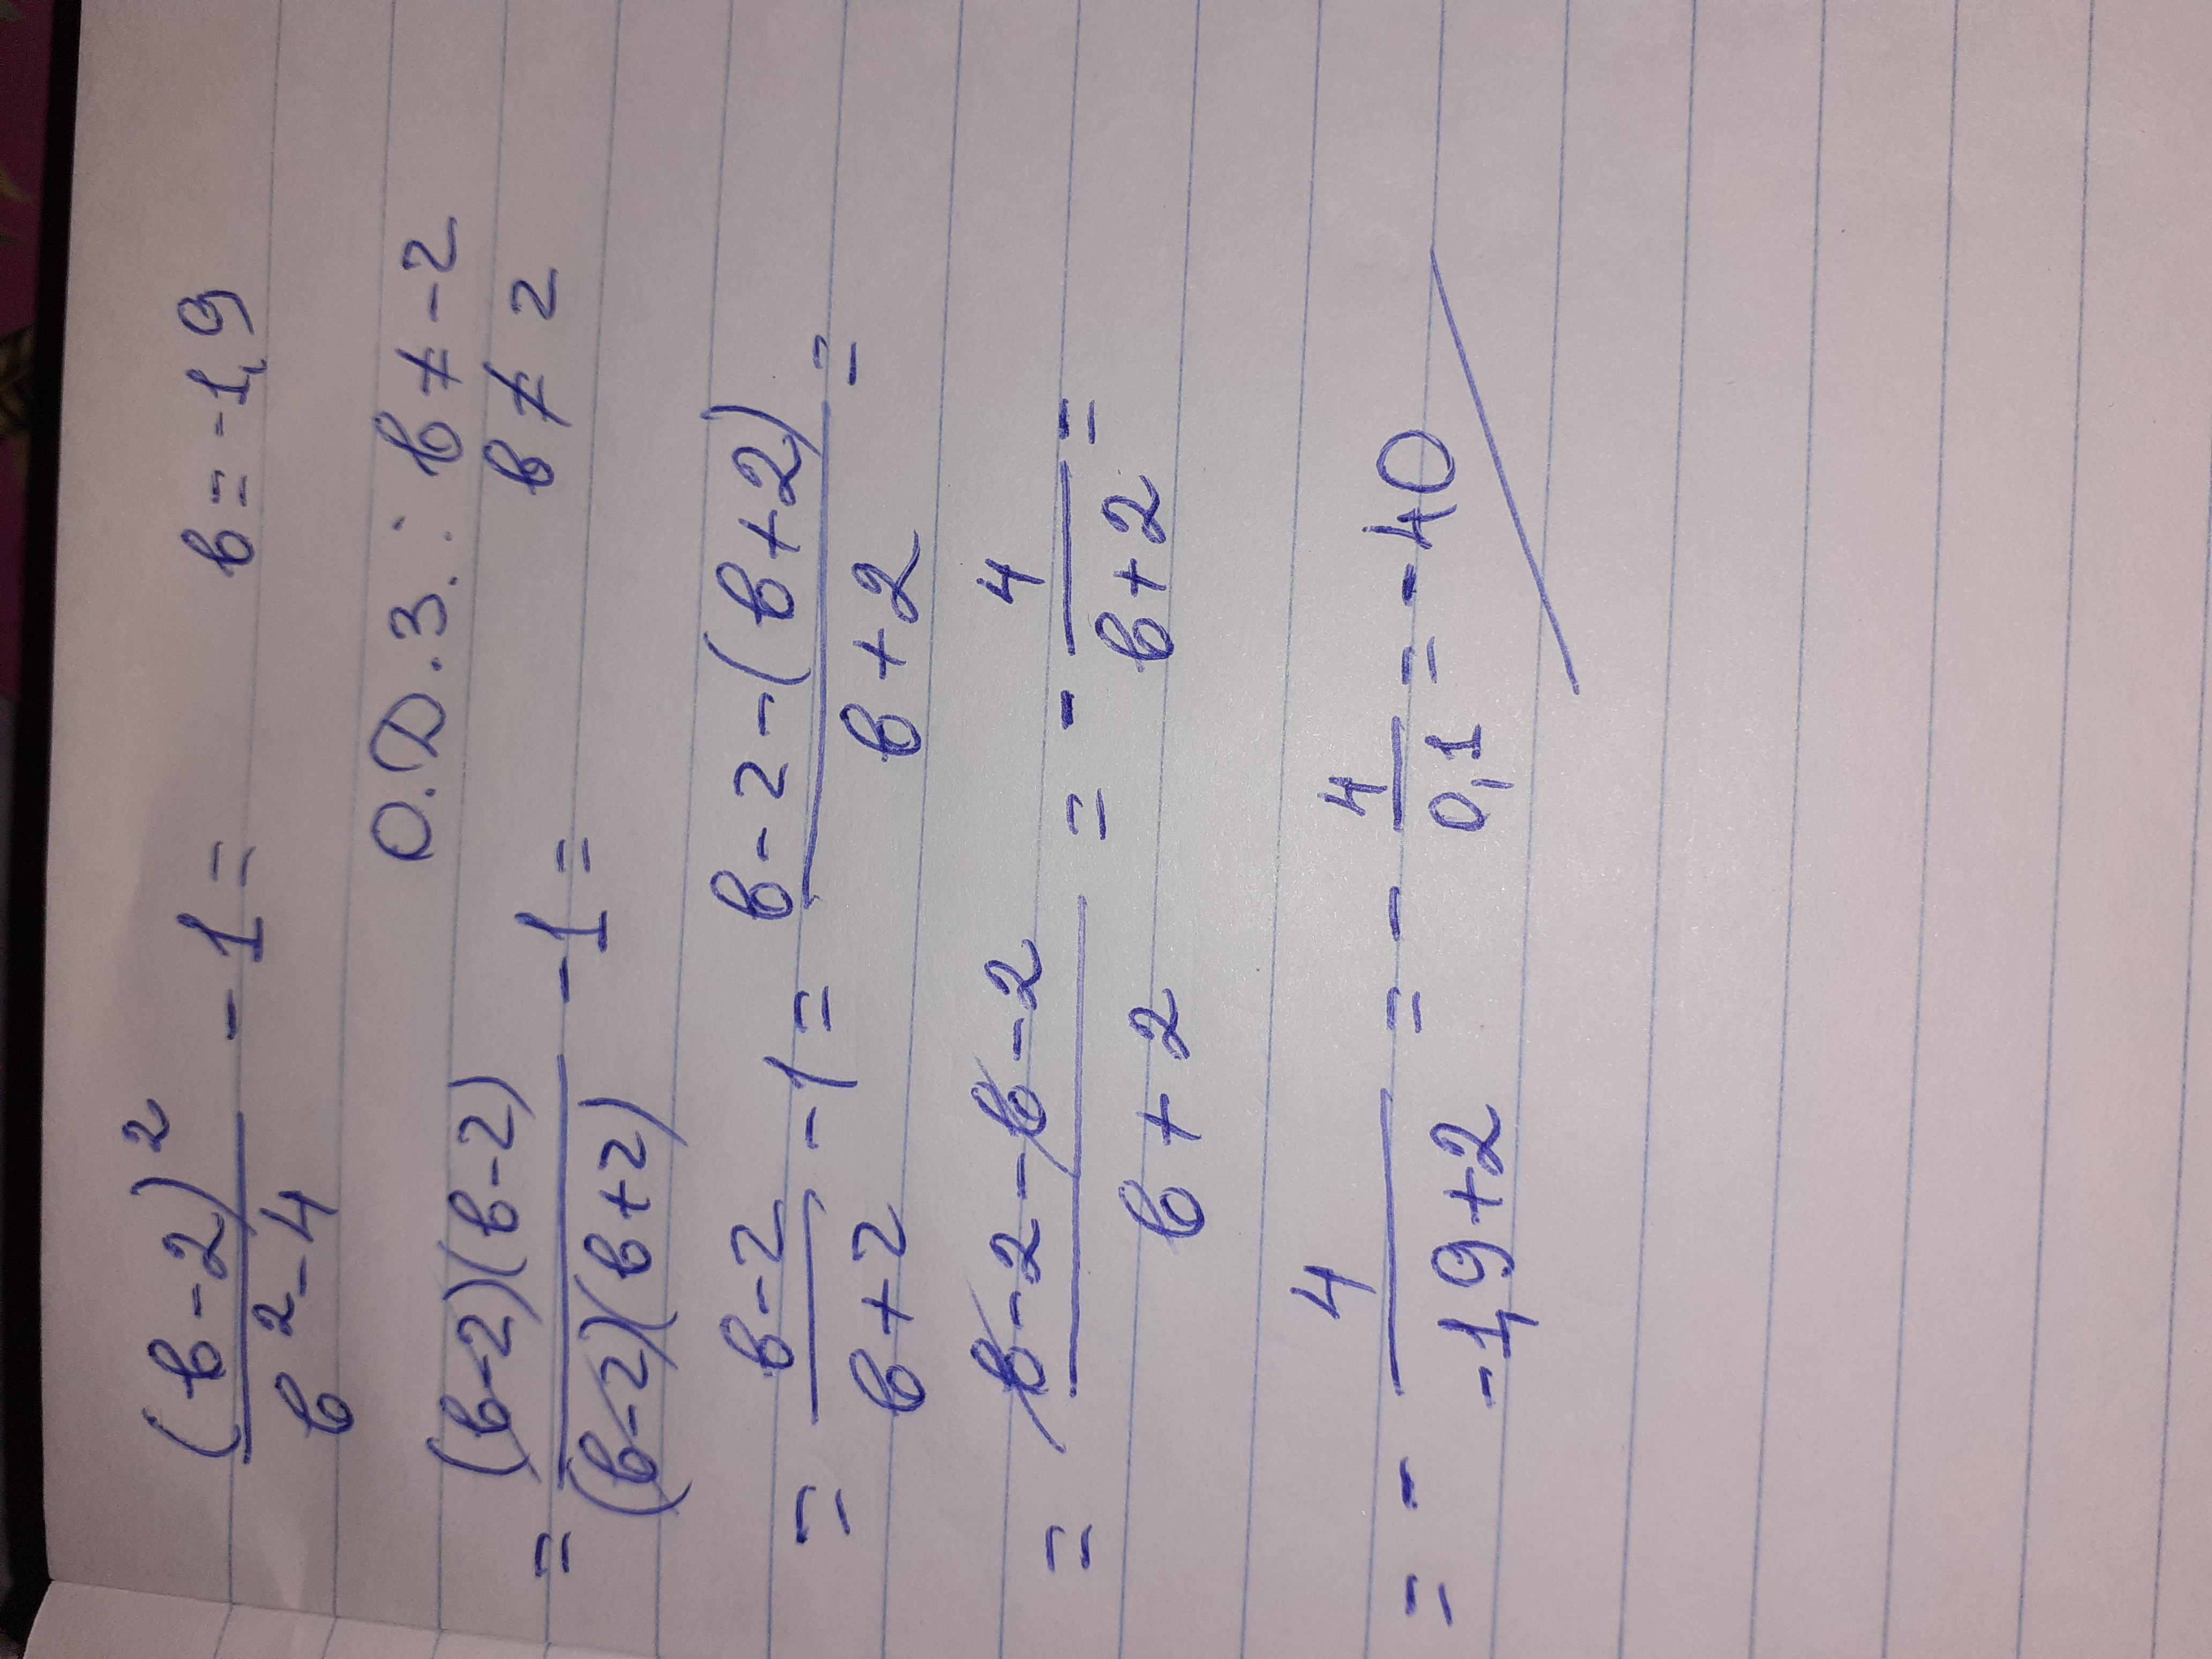 (b-2)²/(b²-4) - 1 =      b = -1,9
О.Д.З.: b ≠ -2
b ≠ 2
= (b-2)(b-2)/((b-2)(b+2)) - 1 =
= (b-2)/(b+2) - 1 = (b-2-(b+2))/(b+2) =
= (b-2-b-2)/(b+2) = - 4/(b+2) =
= - 4/(-1,9+2) = - 4/0,1 = -40